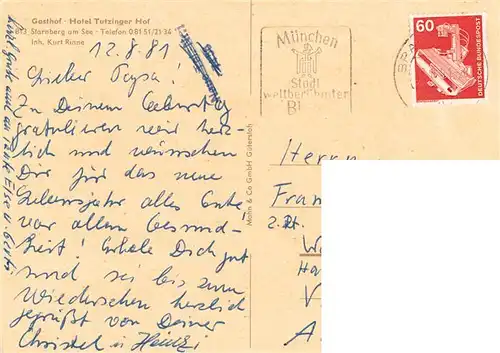 Gasthof · Hotel Tutzinger Hof
813 Starnberg am See · Telefon 0 81 51/31 34
Inh. Kurt Rinne
12.8.81
Lieber Papa!
Zu Deinem Geburtstag
gratulieren wir herz-
lich und wünschen
Dir für das neue
Lebensjahr alles Gute
vor allem Gesund-
heit! Erhole Dich gut
und sei bis zum
Wiedersehen herzlich
gegrüßt von Deiner
Christel u. Heinzi
auch an Tante Else u. Gerti
Mohn & Co GmbH Gütersloh
München
Stadt
weltberühmter
Bi
60
DEUTSCHE BUNDESPOST
Herrn
Fran
2. Zt.
W
Ha
V
A